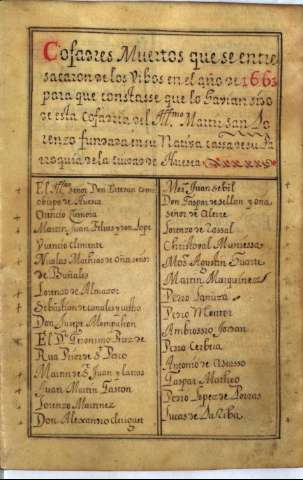 Cofadres Muertos que se entre
sacaron de los Vibos en el año de 1663
para que constasse que lo havian sido
de esta cofadria del Illmo. Martir San Lo
renzo fundada en su Nativa cassa de su Pa
rroquia de la ciudad de Huesca
El Illmo. señor Don Esteban
obispo de Huesca
Orencio Zamora
Martin Juan Felizes
Juancio Climente
Nicolas Mathias de oña señor
de Buñales
Lorenzo de Almazor
Sebastian de canales
Don Jusepe Montanñon
El Dr. Geronimo Perez de
Rua Prior de S. Pedro
Martin de S. Juan y Lanos
Juan Martin Gaston
Lorenzo Martinez
Don Alexandro
Mos. Juan Sebil
Don Gaspar de sellan y oña
señor de Alerre
Lorenzo de Cassal
Christobal Muniessa
Mos. Agustin Duarte
Martin Marquinez
Pedro Sanuza
Pedro Mentor
Ambrossio Jordan
Pedro Cerbera
Antonio de Ascasso
Gaspar Matheo
Pedro Lopez de Porras
Lucas de La Riba